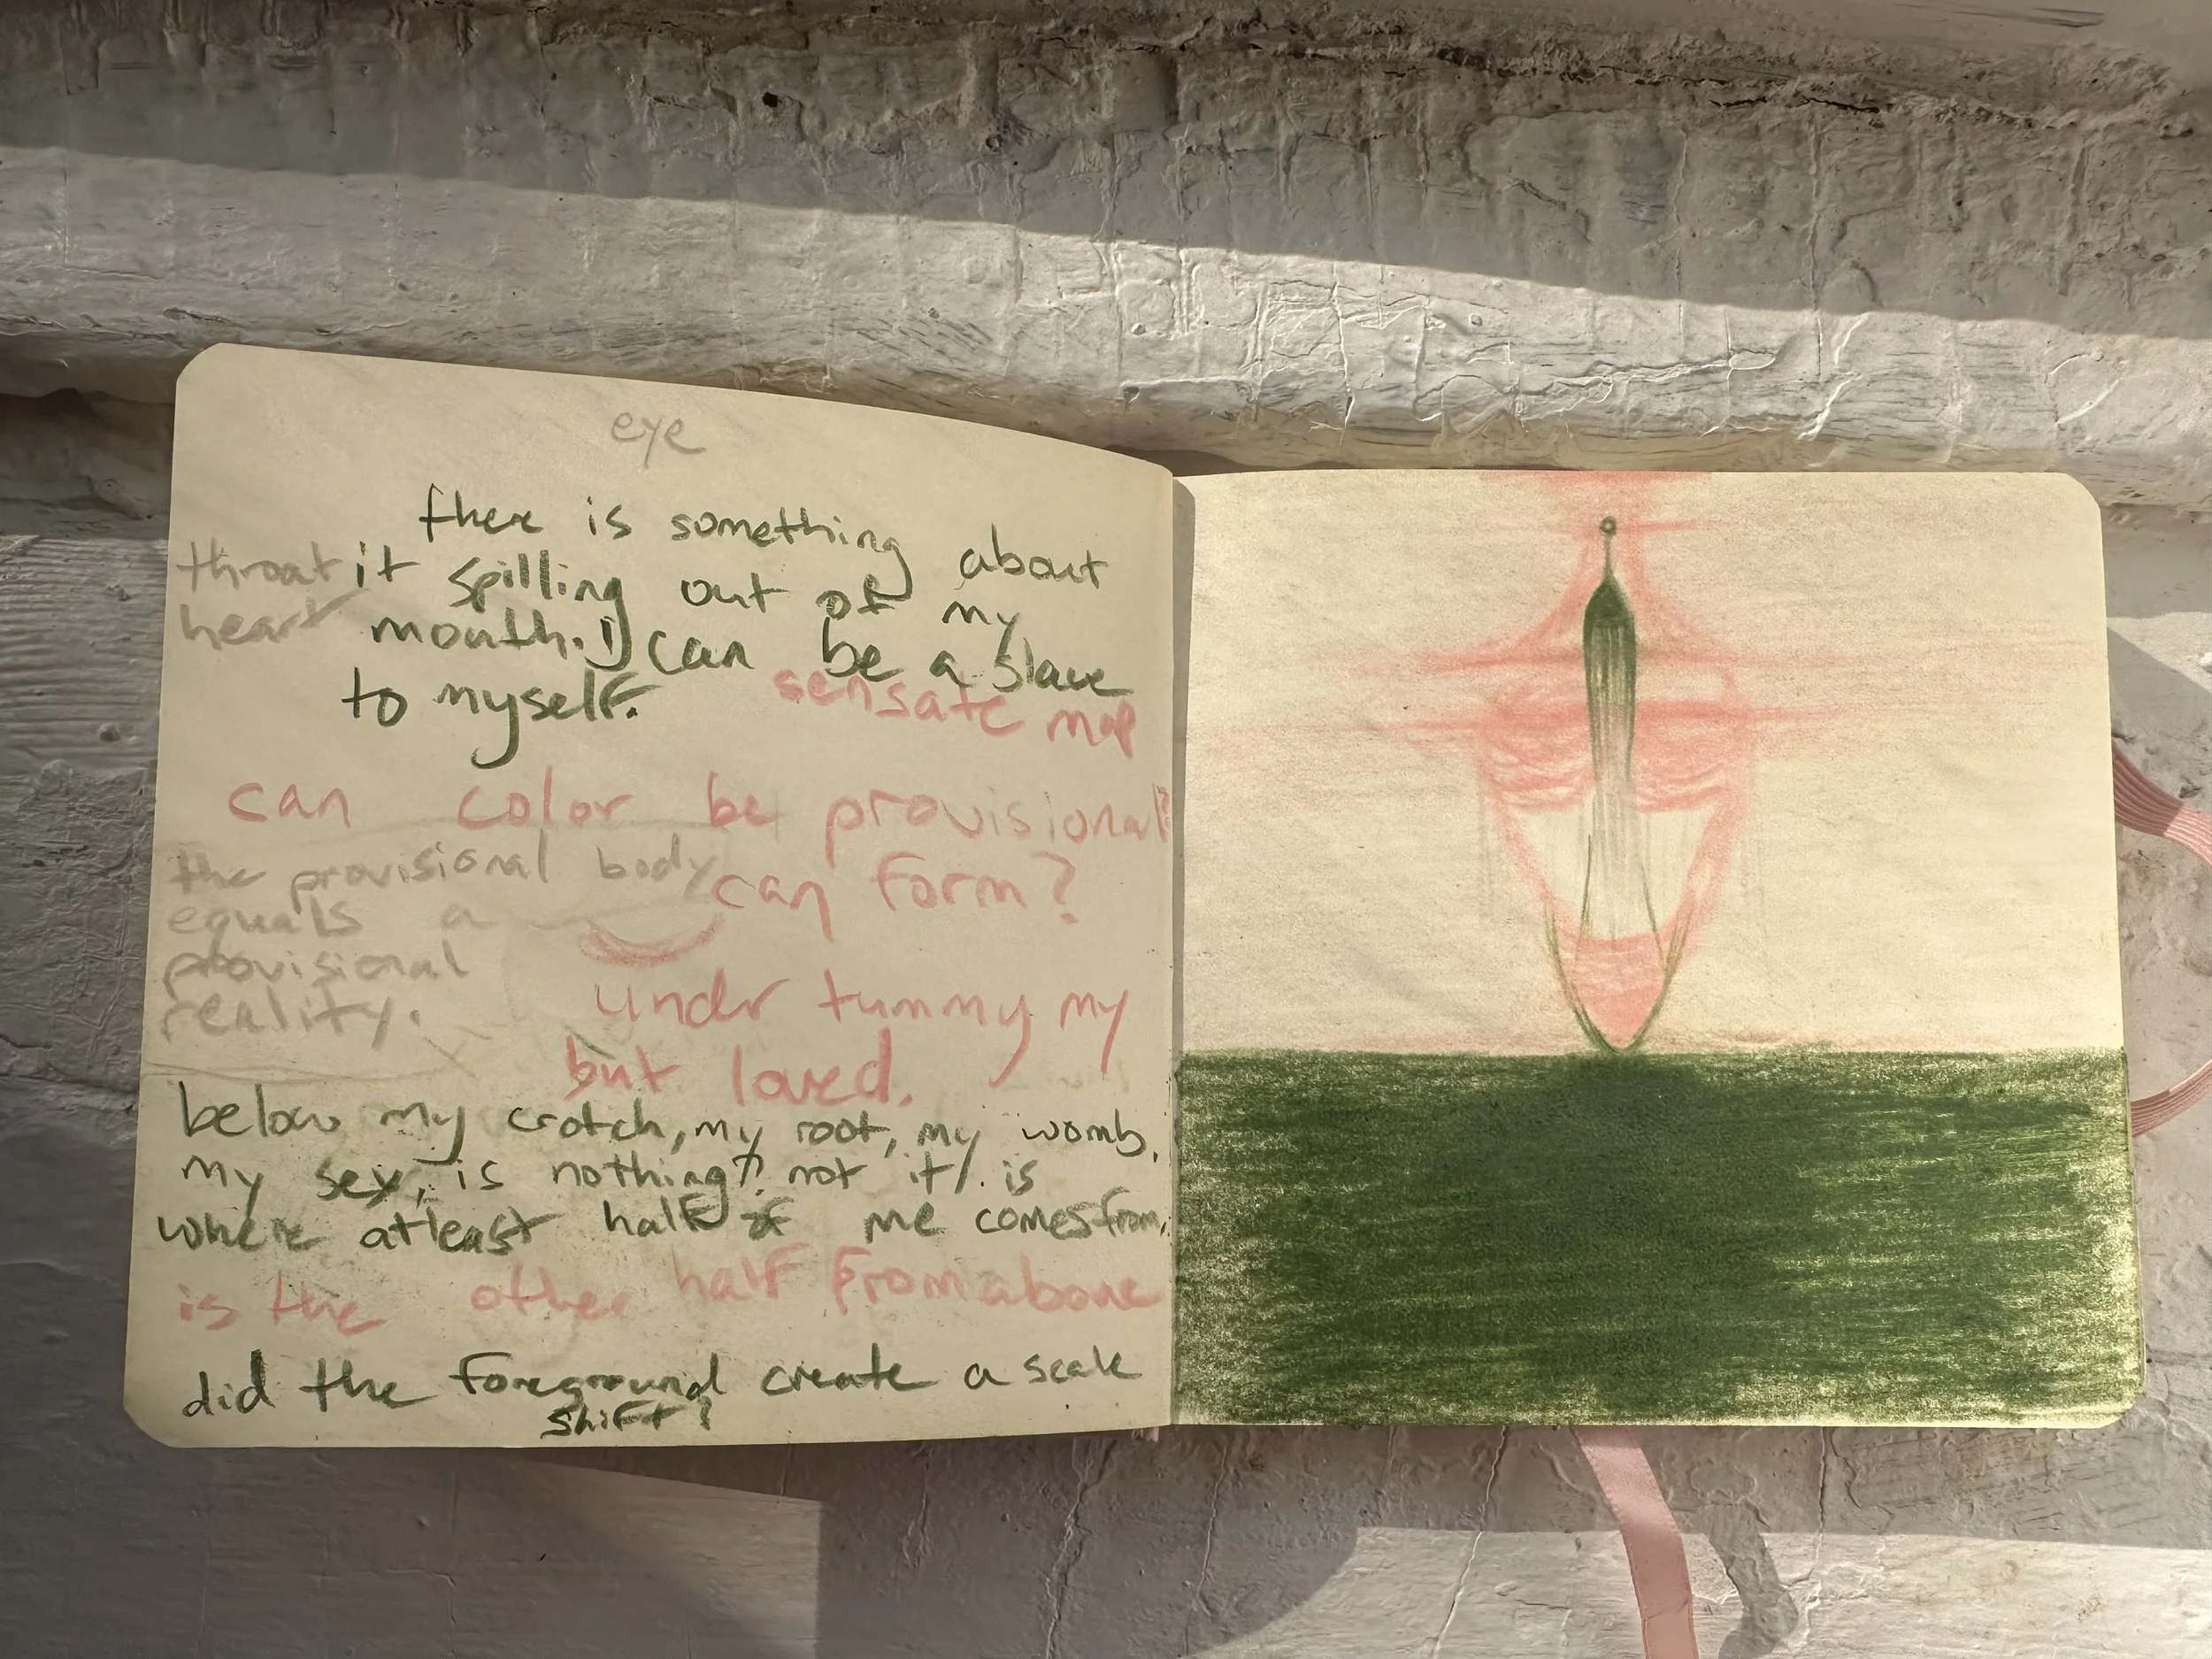 eye
there is something about
throat it spilling out of my
heart mouth. I can be a slave
to myself.
sensate map
can color be provisional?
the provisional body
can form?
equals a
provisional
reality.
under tummy my
but loved.
below my crotch, my root, my womb,
my sex, is nothing? not it. is
where atleast half of me comes from,
is the other half from above
did the foreground create a scale
shift?